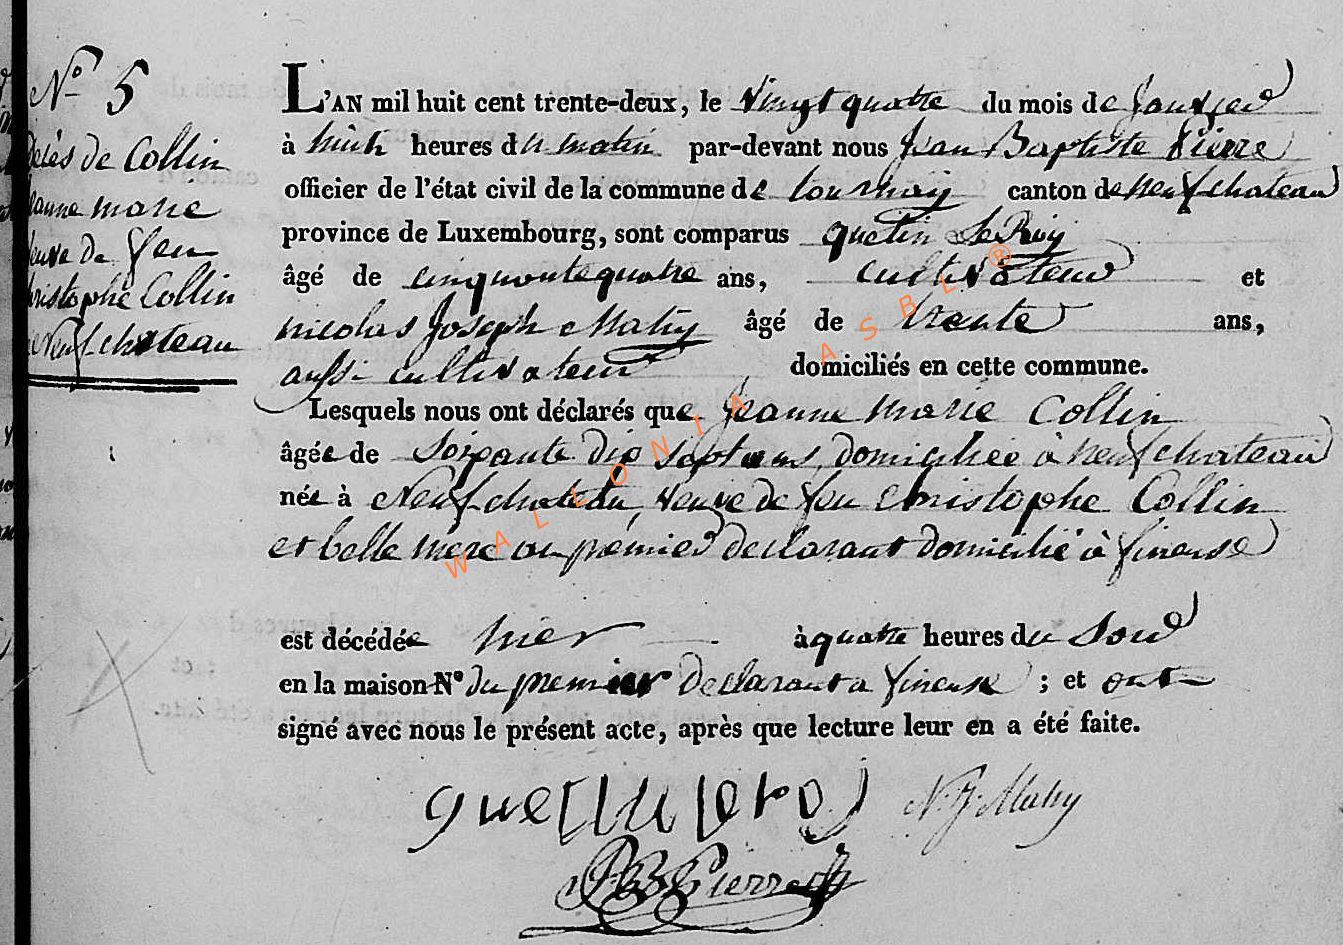 N° 5
Décès de Collin
Jeanne marie
Veuve de feu
Christophe Collin
de Neufchateau
L'AN mil huit cent trente-deux, le vingt quatre du mois de Janvier
à huit heures du matin par-devant nous Jean Baptiste Pierre
officier de l'état civil de la commune de tournay canton de neufchateau
province de Luxembourg, sont comparus quetin Le Roy
âgé de cinquante quatre ans, cultivateur et
nicolas Joseph Mahy âgé de trente ans,
aussi cultivateur domiciliés en cette commune.
Lesquels nous ont déclarés que Jeanne Marie Collin
âgée de soixante dix sept ans, domiciliée à neufchateau
née à Neufchateau, veuve de feu Christophe Collin
et belle mere au premier declarant domicilié à fineuse
est décédée hier à quatre heures du Soir
en la maison N° du premier declarant a fineuse ; et ont
signé avec nous le présent acte, après que lecture leur en a été faite.
N. J. Mahy
J B Pierre
WALLONIA ASBL ®